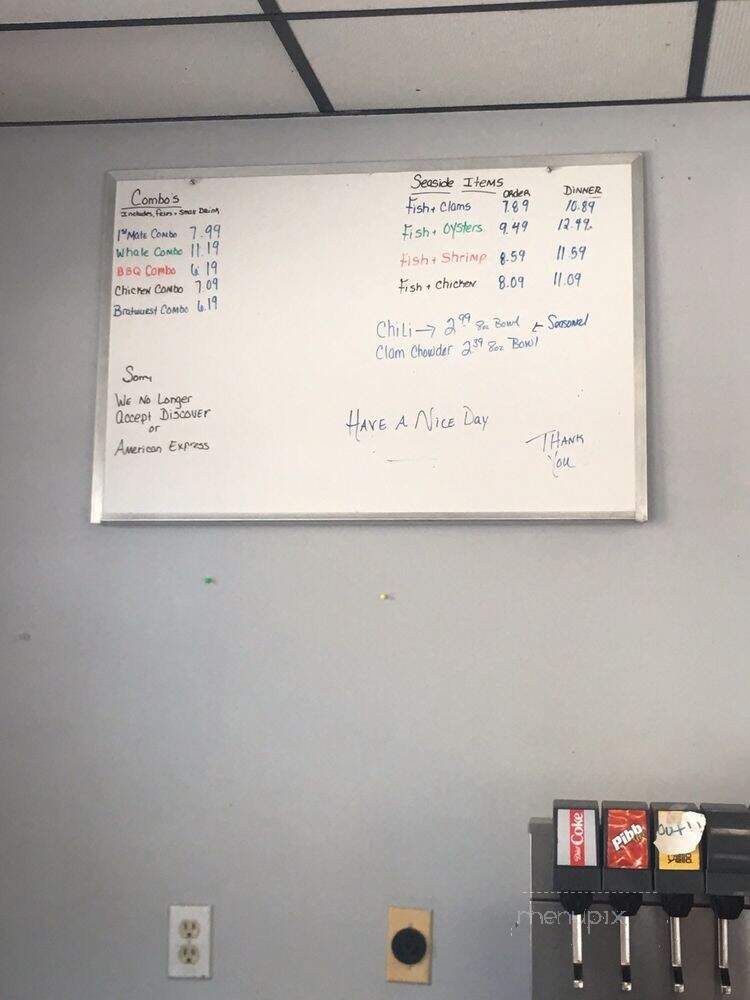 Combo's
Includes, fries + Small Drink
1st Mate Combo 7.99
Whale Combo 11.19
BBQ Combo 6.19
Chicken Combo 7.09
Bratwurst Combo 6.19
Sorry
We No Longer
accept Discover
or
American Express
Seaside Items
Order Dinner
Fish + Clams 7.89 10.89
Fish + Oysters 9.49 12.49
Fish + Shrimp 8.59 11.59
Fish + chicken 8.09 11.09
Chili → 2.99 8oz Bowl ← Seasonal
Clam Chowder 2.39 8oz Bowl
Have A Nice Day
Thank
You
Diet Coke
Pibb
Out!!
menupix